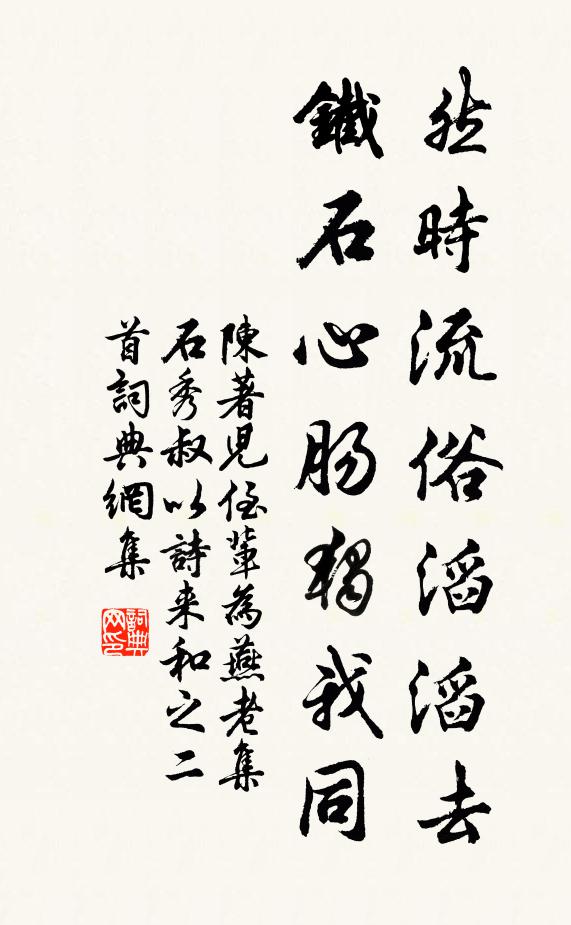 時流俗滔滔去
鐵石心腸獨我同
陳著兒侄輩為燕老集
石秀叔以詩来和之二
首詞典網集
詞典
网印